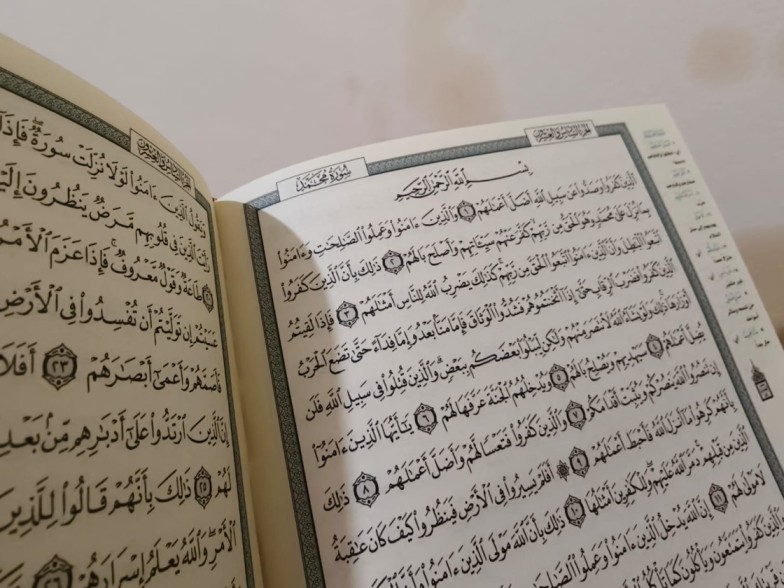 الجزء السادس والعشرون
سُورَةُ مُحَمَّدٍ
بِسْمِ ٱللَّهِ ٱلرَّحْمَٰنِ ٱلرَّحِيمِ
ٱلَّذِينَ كَفَرُوا۟ وَصَدُّوا۟ عَن سَبِيلِ ٱللَّهِ أَضَلَّ أَعْمَٰلَهُمْ ١ وَٱلَّذِينَ ءَامَنُوا۟ وَعَمِلُوا۟ ٱلصَّٰلِحَٰتِ وَءَامَنُوا۟
بِمَا نُزِّلَ عَلَىٰ مُحَمَّدٍ وَهُوَ ٱلْحَقُّ مِن رَّبِّهِمْ كَفَّرَ عَنْهُمْ سَيِّـَٔاتِهِمْ وَأَصْلَحَ بَالَهُمْ ٢ ذَٰلِكَ بِأَنَّ ٱلَّذِينَ كَفَرُوا۟
ٱتَّبَعُوا۟ ٱلْبَٰطِلَ وَأَنَّ ٱلَّذِينَ ءَامَنُوا۟ ٱتَّبَعُوا۟ ٱلْحَقَّ مِن رَّبِّهِمْ كَذَٰلِكَ يَضْرِبُ ٱللَّهُ لِلنَّاسِ أَمْثَٰلَهُمْ ٣ فَإِذَا لَقِيتُمُ
ٱلَّذِينَ كَفَرُوا۟ فَضَرْبَ ٱلرِّقَابِ حَتَّىٰٓ إِذَآ أَثْخَنتُمُوهُمْ فَشُدُّوا۟ ٱلْوَثَاقَ فَإِمَّا مَنًّۢا بَعْدُ وَإِمَّا فِدَآءً حَتَّىٰ تَضَعَ ٱلْحَرْبُ
أَوْزَارَهَا ذَٰلِكَ وَلَوْ يَشَآءُ ٱللَّهُ لَٱنتَصَرَ مِنْهُمْ وَلَٰكِن لِّيَبْلُوَا۟ بَعْضَكُم بِبَعْضٍ وَٱلَّذِينَ قُتِلُوا۟ فِى سَبِيلِ ٱللَّهِ فَلَن
يُضِلَّ أَعْمَٰلَهُمْ ٤ سَيَهْدِيهِمْ وَيُصْلِحُ بَالَهُمْ ٥ وَيُدْخِلُهُمُ ٱلْجَنَّةَ عَرَّفَهَا لَهُمْ ٦ يَٰٓأَيُّهَا ٱلَّذِينَ ءَامَنُوٓا۟
إِن تَنصُرُوا۟ ٱللَّهَ يَنصُرْكُمْ وَيُثَبِّتْ أَقْدَامَكُمْ ٧ وَٱلَّذِينَ كَفَرُوا۟ فَتَعْسًا لَّهُمْ وَأَضَلَّ أَعْمَٰلَهُمْ ٨ ذَٰلِكَ
بِأَنَّهُمْ كَرِهُوا۟ مَآ أَنزَلَ ٱللَّهُ فَأَحْبَطَ أَعْمَٰلَهُمْ ٩ ۞ أَفَلَمْ يَسِيرُوا۟ فِى ٱلْأَرْضِ فَيَنظُرُوا۟ كَيْفَ كَانَ عَٰقِبَةُ
ٱلَّذِينَ مِن قَبْلِهِمْ دَمَّرَ ٱللَّهُ عَلَيْهِمْ وَلِلْكَٰفِرِينَ أَمْثَٰلُهَا ١٠ ذَٰلِكَ بِأَنَّ ٱللَّهَ مَوْلَى ٱلَّذِينَ ءَامَنُوا۟ وَأَنَّ
لَا مَوْلَىٰ لَهُمْ ١١ إِنَّ ٱللَّهَ يُدْخِلُ ٱلَّذِينَ ءَامَنُوا۟ وَعَمِلُوا۟
كَفَرُوا۟ يَتَمَتَّعُونَ وَيَأْكُلُونَ كَمَا
الجزء السادس والعشرون
وَيَقُولُ ٱلَّذِينَ ءَامَنُوا۟ لَوْلَا نُزِّلَتْ سُورَةٌ فَإِذَآ
رَأَيْتَ ٱلَّذِينَ فِى قُلُوبِهِم مَّرَضٌ يَنظُرُونَ إِلَيْ
طَاعَةٌ وَقَوْلٌ مَّعْرُوفٌ فَإِذَا عَزَمَ ٱلْأَمْرُ
عَسَيْتُمْ إِن تَوَلَّيْتُمْ أَن تُفْسِدُوا۟ فِى ٱلْأَرْضِ
فَأَصَمَّهُمْ وَأَعْمَىٰٓ أَبْصَٰرَهُمْ ٢٣ أَفَلَا
إِنَّ ٱلَّذِينَ ٱرْتَدُّوا۟ عَلَىٰٓ أَدْبَٰرِهِم مِّنۢ بَعْدِ
لَهُمْ ٢٥ ذَٰلِكَ بِأَنَّهُمْ قَالُوا۟ لِلَّذِينَ
ٱلْأَمْرِ وَٱللَّهُ يَعْلَمُ إِسْرَارَهُمْ ٢٦